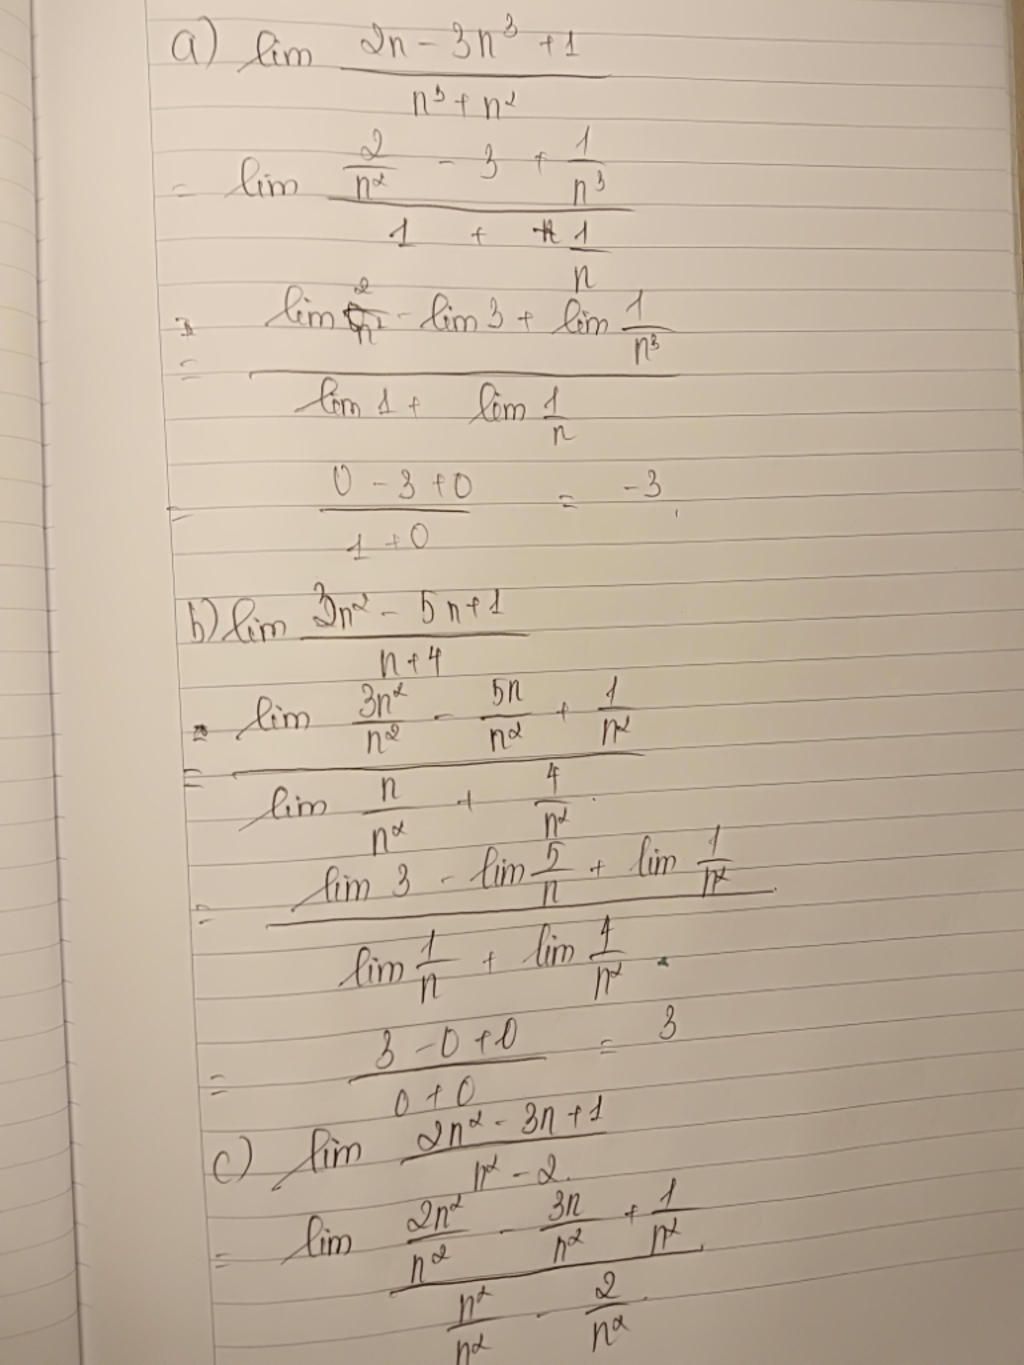 a) lim (2n - 3n³ + 1)/(n³ + n²)
= lim (2/n² - 3 + 1/n³)/(1 + 1/n)
= (lim 2/n² - lim 3 + lim 1/n³)/(lim 1 + lim 1/n)
= (0 - 3 + 0)/(1 + 0) = -3
b) lim (3n² - 5n + 1)/(n + 4)
= (lim 3n²/n² - 5n/n² + 1/n²)/(lim n/n² + 4/n²)
= (lim 3 - lim 5/n + lim 1/n²)/(lim 1/n + lim 4/n²)
= (3 - 0 + 0)/(0 + 0) = 3
c) lim (2n² - 3n + 1)/(n² - 2)
= lim (2n²/n² - 3n/n² + 1/n²)/(n²/n² - 2/n²)